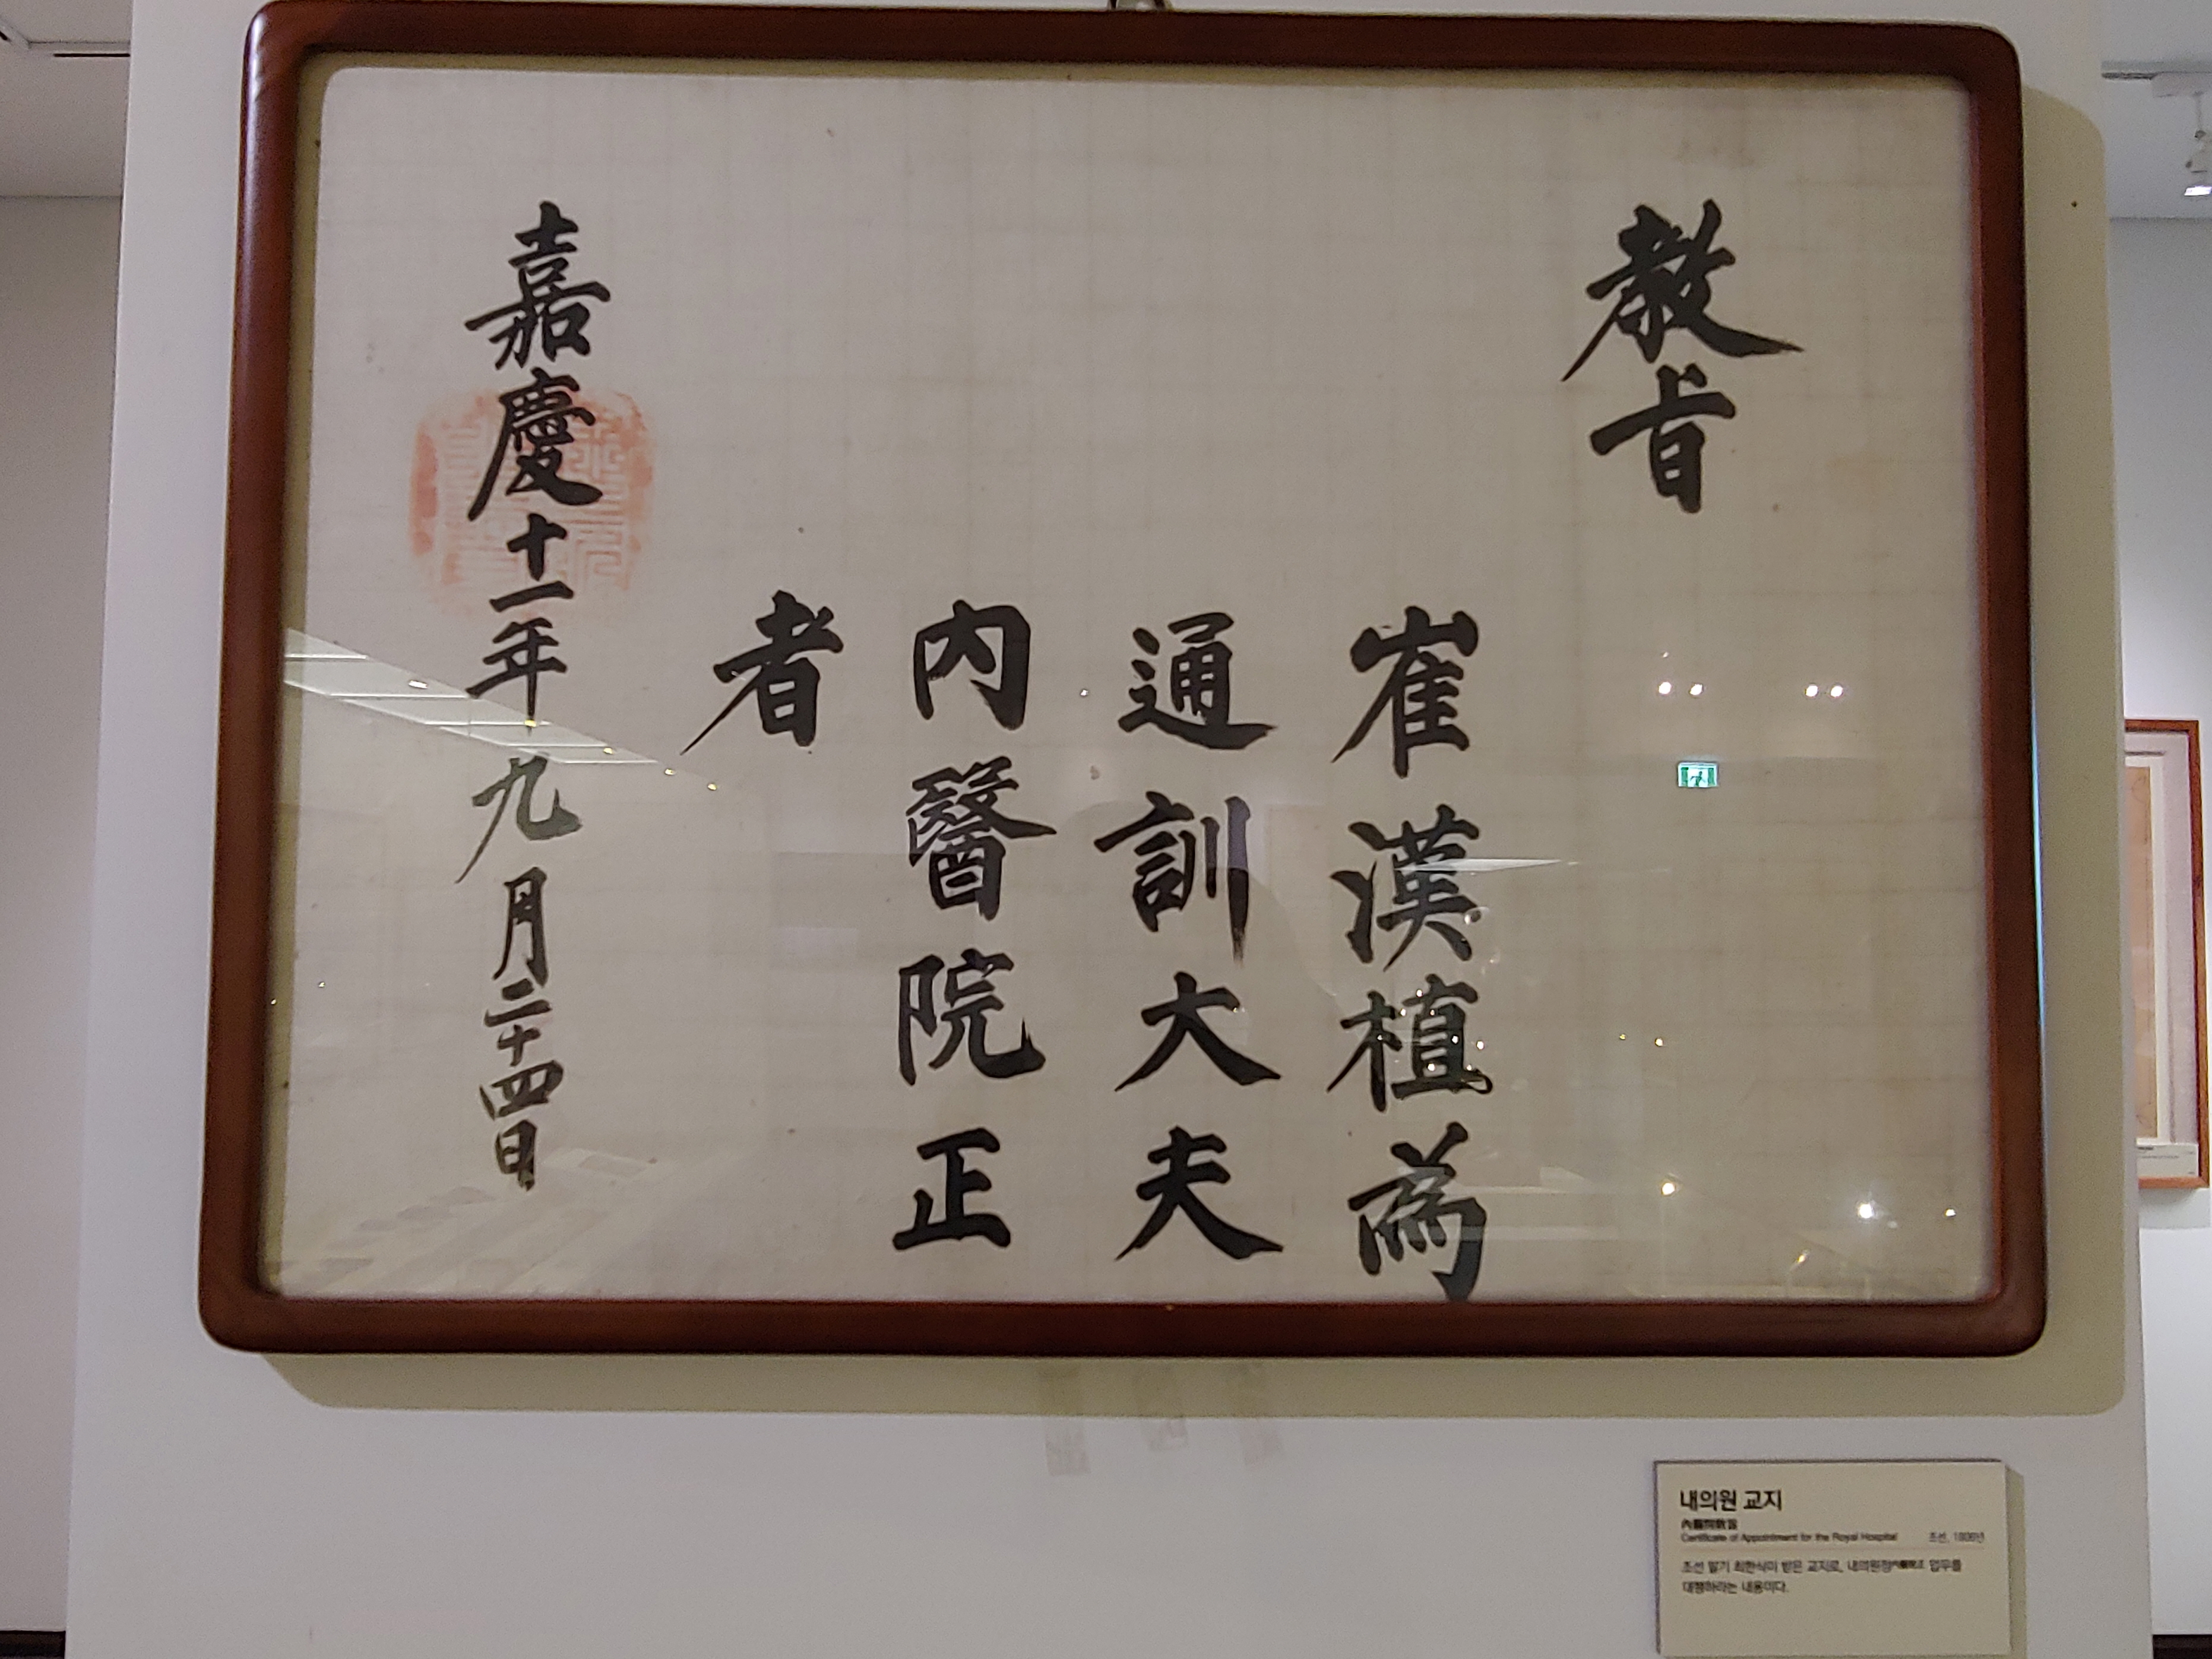 敎旨
崔漢植爲
通訓大夫
內醫院正
者
嘉慶十一年九月二十四日
내의원 교지
內醫院敎旨
Certificate of Appointment for the Royal Hospital 조선, 1806년
조선 말기 최한식이 받은 교지로, 내의원정內醫院正 업무를
대행하라는 내용이다.